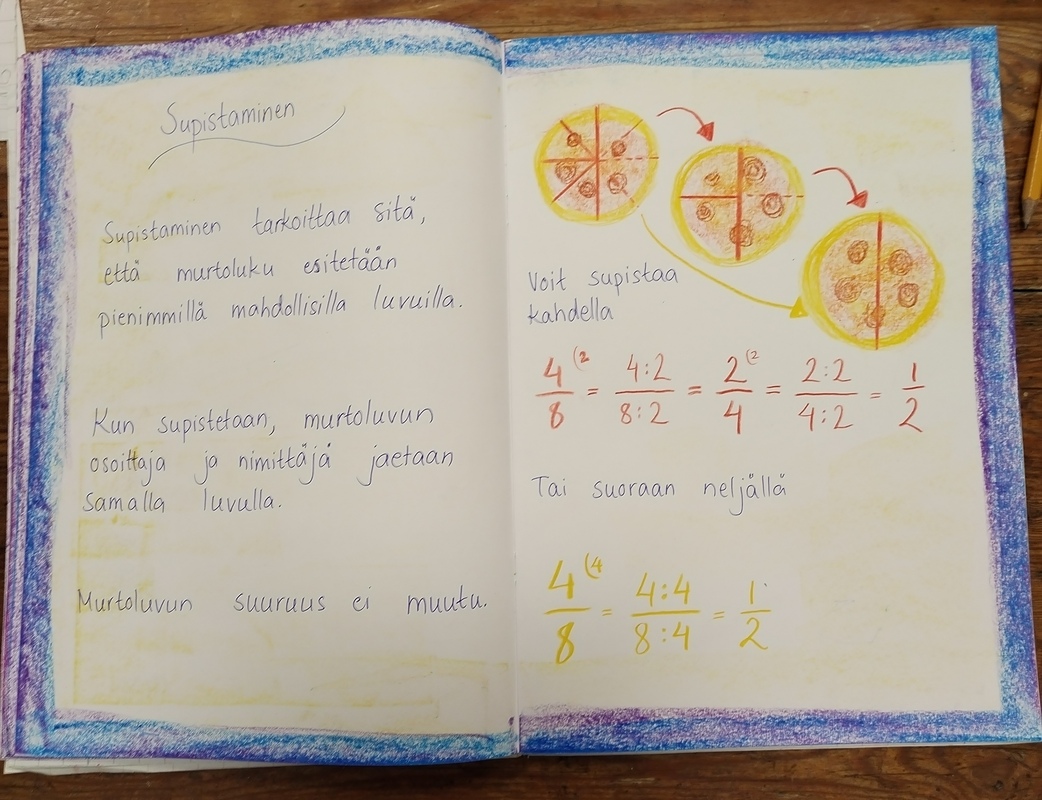 Supistaminen
Supistaminen tarkoittaa sitä,
että murtoluku esitetään
pienimmillä mahdollisilla luvuilla.
Kun supistetaan, murtoluvun
osoittaja ja nimittäjä jaetaan
samalla luvulla.
Murtoluvun suuruus ei muutu.
Voit supistaa
kahdella
4/8 (2 = 4:2/8:2 = 2/4 (2 = 2:2/4:2 = 1/2
Tai suoraan neljällä
4/8 (4 = 4:4/8:4 = 1/2